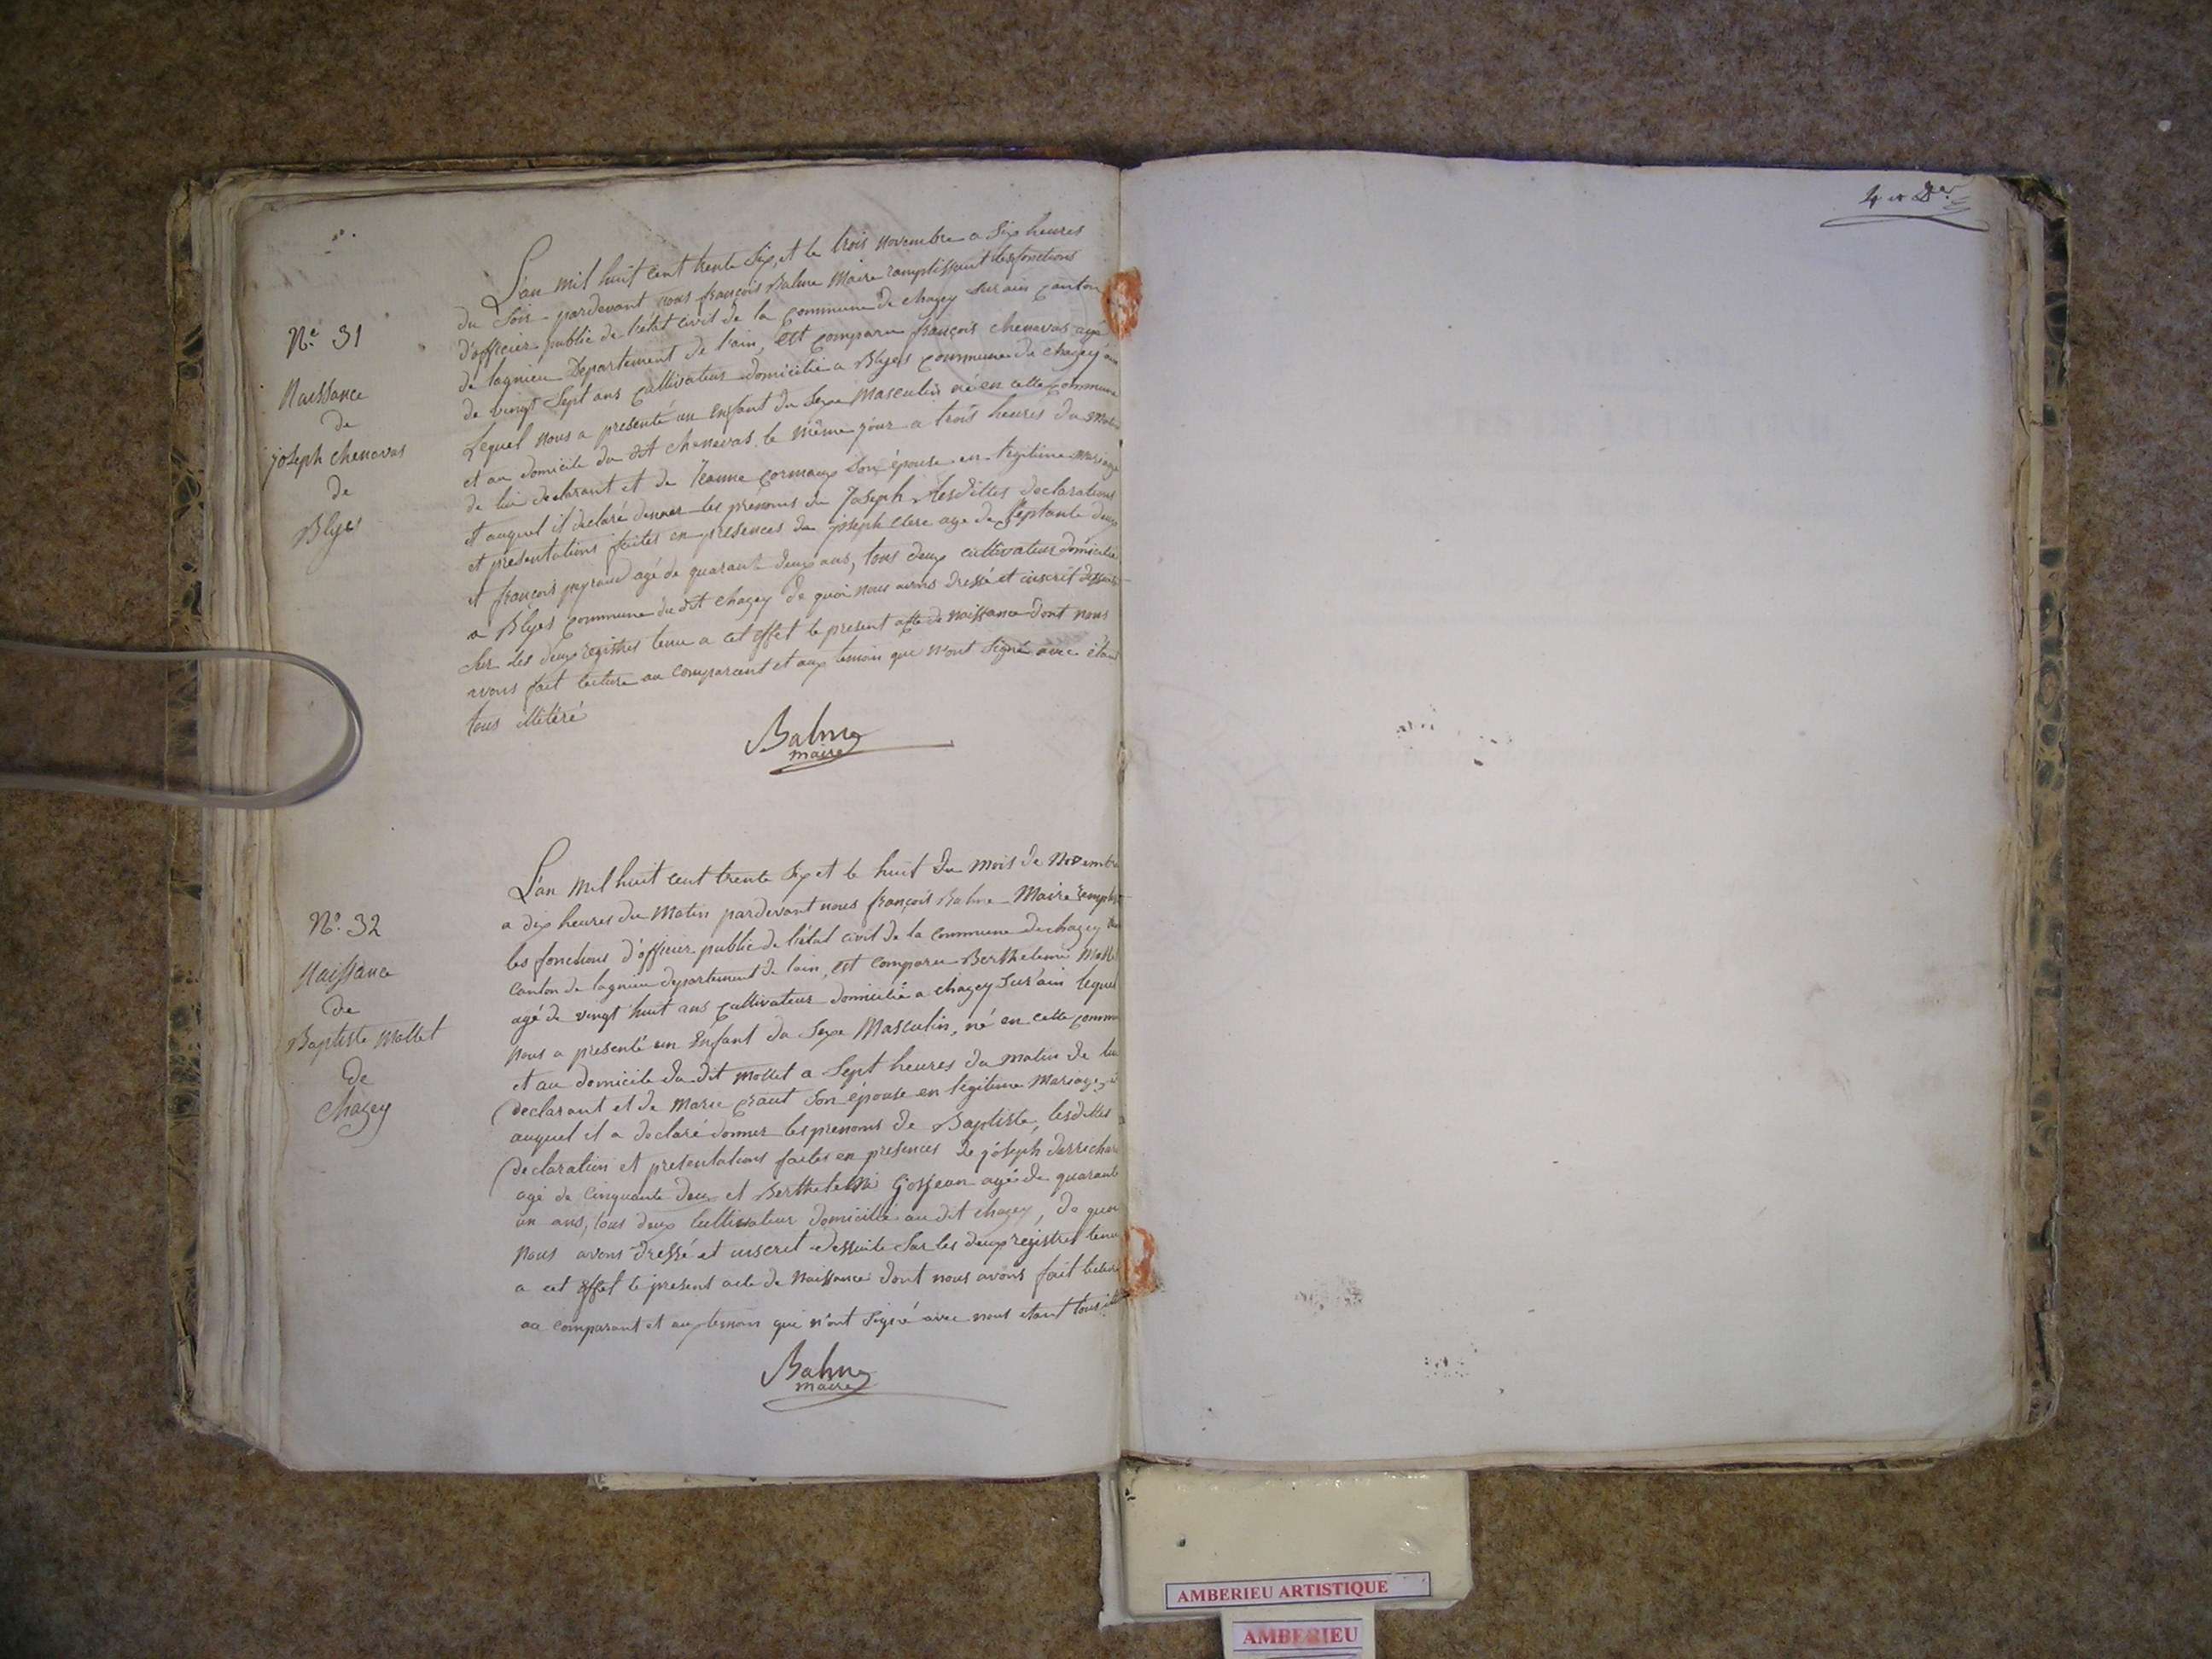 N.e 31
Naissance
de
joseph chenavas
de
Blyes
L'an mil huit cent trente six, et le trois novembre a six heures
du soir pardevant nous françois Balme Maire ramplissant les fonctions
d'officier public de l'état civil de la commune de chazey sur ain canton
de lagnieu Département de l'ain, est comparu françois chenavas agé
de vingt sept ans cultivateur domicilié a Blyes commune de chazey
Lequel nous a presenté un enfant du sexe Masculin né en cette commune
et au domicile du dit chenavas le même jour a trois heures du matin
de lui declarant et de Jeanne cormaux son épouse en legitime mariage
et auquel il declaré donner les prénoms de Joseph lesdittes declarations
et presentations faites en presences de joseph clerc age de septante deux
et françois peyraud agé de quarante deux ans, tous deux cultivateur domicilié
a Blyes commune du dit chazey de quoi nous avons dressé et inscrit dessuite
sur les deux registres tenu a cet effet le present acte de naissance dont nous
avons fait lecture au comparant et aux temoin que n'ont signé avec étant
tous illitéré
Balme
maire
N.o 32
Naissance
de
Baptiste Mollet
de
Chazey
L'an mil huit cent trente six et le huit du mois de Novembre
a dix heures du matin pardevant nous françois Balme Maire
les fonctions d'officier public de l'état civil de la commune de chazey
canton de lagnieu departement de lain, est comparu Berthelemi Mollet
agé de vingt huit ans cultivateur domicilié a chazey sur ain lequel
nous a presenté un enfant du sexe Masculin, né en cette
et au domicile du dit mollet a sept heures du matin de lui
declarant et de Marie son épouse en legitime Mariage,
auquel il a declaré donner les prenoms de Baptiste, lesdittes
declaration et presentations faites en presences de joseph
agé de cinquante deux et Berthelemi Gosjean agé de quarante
un ans, tous deux cultivateur domicilié au dit chazey, de quoi
nous avons dressé et inscrit dessuite sur les deux registres tenu
a cet effet le present acte de naissance dont nous avons fait lecture
au comparant et aux temoin qui n'ont signé avec nous etant tous
Balme
maire
4 et
AMBERIEU ARTISTIQUE
AMBERIEU